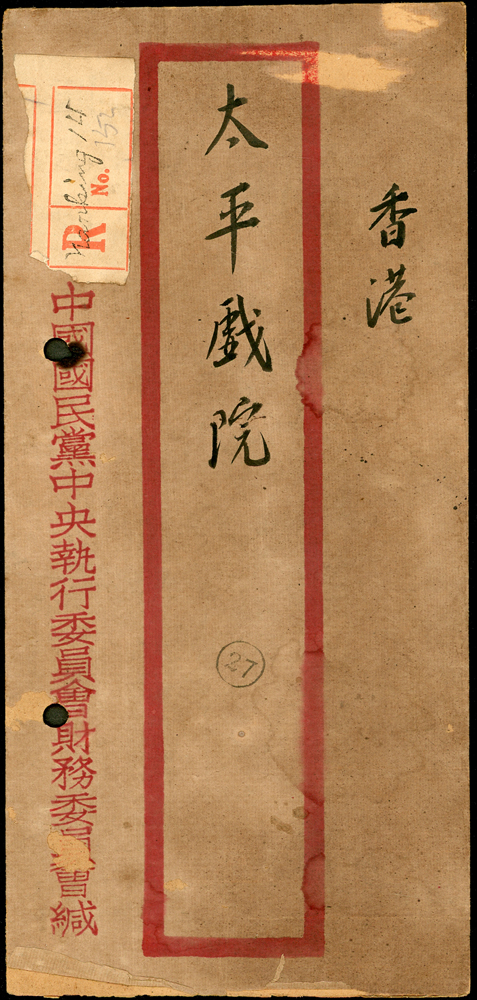 香港
太平戲院
27
Nanking 14
R No. 152
中國國民黨中央執行委員會財務委員會緘